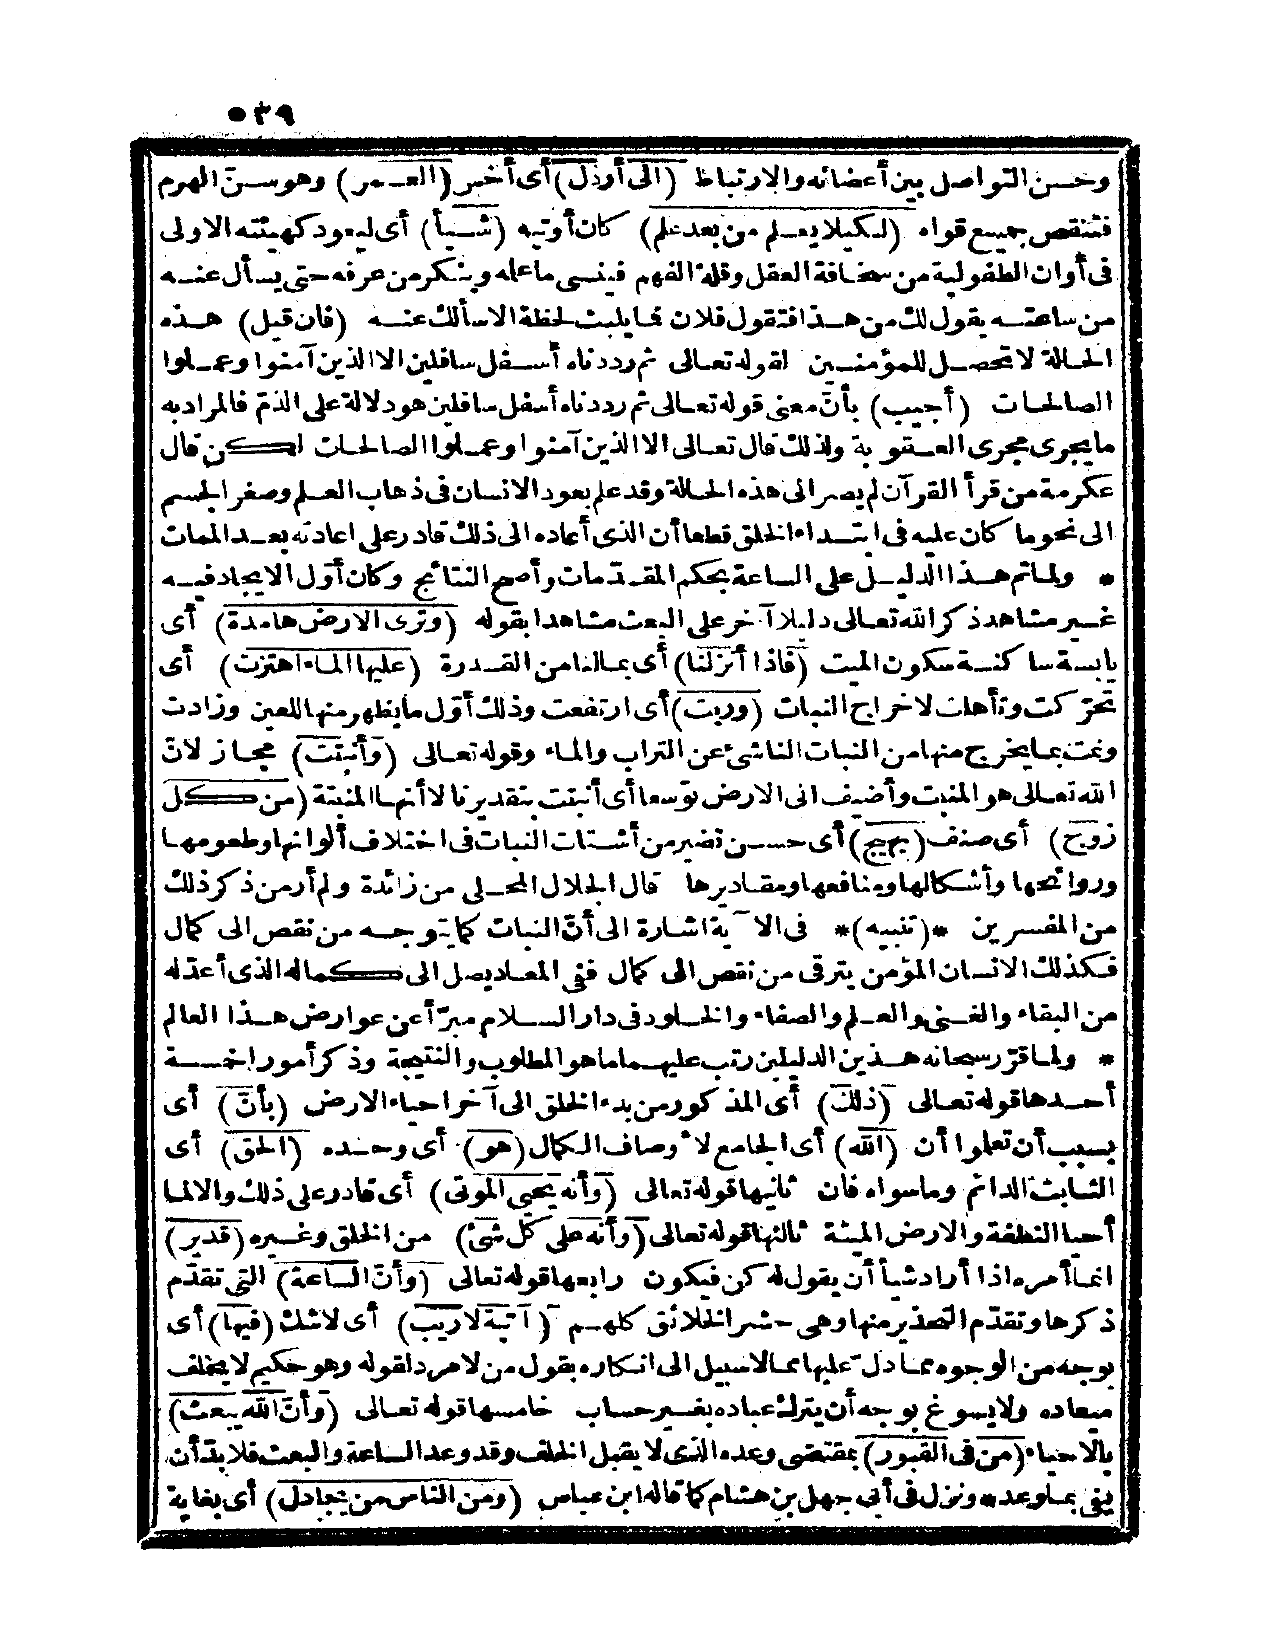 ٥٣٩
وحسن التواصل بين أعضائه والارتباط (الى أرذل) أى أخس (العمر) وهو سنّ الهرم
فتنقص جميع قواه (لكيلا يعلم من بعد علم) كان أوتيه (شيأ) أى ليعود كهيئته الاولى
فى أوان الطفولية من سخافة العقل وقلة الفهم فينسى ما علمه وينكر من عرفه حتى يسأل عنه
من ساعته يقول لك من هذا فتقول فلان فما يلبث لحظة الا سألك عنه (فان قيل) هذه
الحالة لا تحصل للمؤمنين لقوله تعالى ثم رددناه أسفل سافلين الا الذين آمنوا وعملوا
الصالحات (أجيب) بأنّ معنى قوله تعالى ثم رددناه أسفل سافلين هو دلالة على الذمّ فالمراد به
ما يجرى مجرى العقوبة ولذلك قال تعالى الا الذين آمنوا وعملوا الصالحات لكن قال
عكرمة من قرأ القرآن لم يصر الى هذه الحالة وقد علم بعود الانسان فى ذهاب العلم وصغر الجسم
الى نحو ما كان عليه فى ابتداء الخلق قطعا أن الذى أعاده الى ذلك قادر على اعادته بعد الممات
* ولما تم هذا الدليل على الساعة بحكم المقدّمات وأصح النتائج وكان أوّل الايجاد فيه
غير مشاهد ذكر الله تعالى دليلا آخر على البعث مشاهدا بقوله (وترى الارض هامدة) أى
يابسة ساكنة سكون الميت (فاذا أنزلنا) أى بمالنا من القدرة (عليها الماء اهتزت) أى
تحرّكت وتأهلت لاخراج النبات (وربت) أى ارتفعت وذلك أوّل ما يظهر منها للعين وزادت
ونمت بما يخرج منها من النبات الناشئ عن التراب والماء وقوله تعالى (وأنبتت) مجاز لانّ
الله تعالى هو المنبت وأضيف الى الارض توسعا أى أنبتت بتقديرنا لا أنها المنبتة (من كل
زوج) أى صنف (بهيج) أى حسن نضير من أشتات النبات فى اختلاف ألوانها وطعومها
وروائحها وأشكالها ومنافعها ومقاديرها قال الجلال المحلى من زائدة ولم أر من ذكر ذلك
من المفسرين *(تنبيه)* فى الآية اشارة الى أنّ النبات كما يتوجه من نقص الى كمال
فكذلك الانسان المؤمن يترقى من نقص الى كمال ففى المعاد يصل الى كماله الذى أعدّ له
من البقاء والغنى والعلم والصفاء والخلود فى دار السلام مبرّأ عن عوارض هذا العالم
* ولما قرّر سبحانه هذين الدليلين رتب عليهما ما هو المطلوب والنتيجة وذكر أمورا خمسة
أحدها قوله تعالى (ذلك) أى المذكور من بدء الخلق الى آخر احياء الارض (بأنّ) أى
بسبب أن تعلموا أن (الله) أى الجامع لاوصاف الكمال (هو) أى وحده (الحق) أى
الثابت الدائم وما سواه فان ثانيها قوله تعالى (وأنه يحيى الموتى) أى قادر على ذلك والا لما
أحيا النطفة والارض الميتة ثالثها قوله تعالى (وأنه على كل شئ) من الخلق وغيره (قدير)
انما أمره اذا أراد شيأ أن يقول له كن فيكون رابعها قوله تعالى (وأنّ الساعة) التى تقدّم
ذكرها وتقدّم التحذير منها وهى حشر الخلائق كلهم (آتية لا ريب) أى لا شك (فيها) أى
بوجه من الوجوه مما دل عليها مما لا سبيل الى انكاره بقول من لا مردّ لقوله وهو حكيم لا يخلف
ميعاده ولا يسوغ بوجه أن يترك عباده بغير حساب خامسها قوله تعالى (وأنّ الله يبعث)
بالاحياء (من فى القبور) بمقتضى وعده الذى لا يقبل الخلف وقد وعد الساعة والبعث فلا بدّ أن
يفى بما وعد * ونزل فى أبى جهل بن هشام كما قاله ابن عباس (ومن الناس من يجادل) أى بغاية